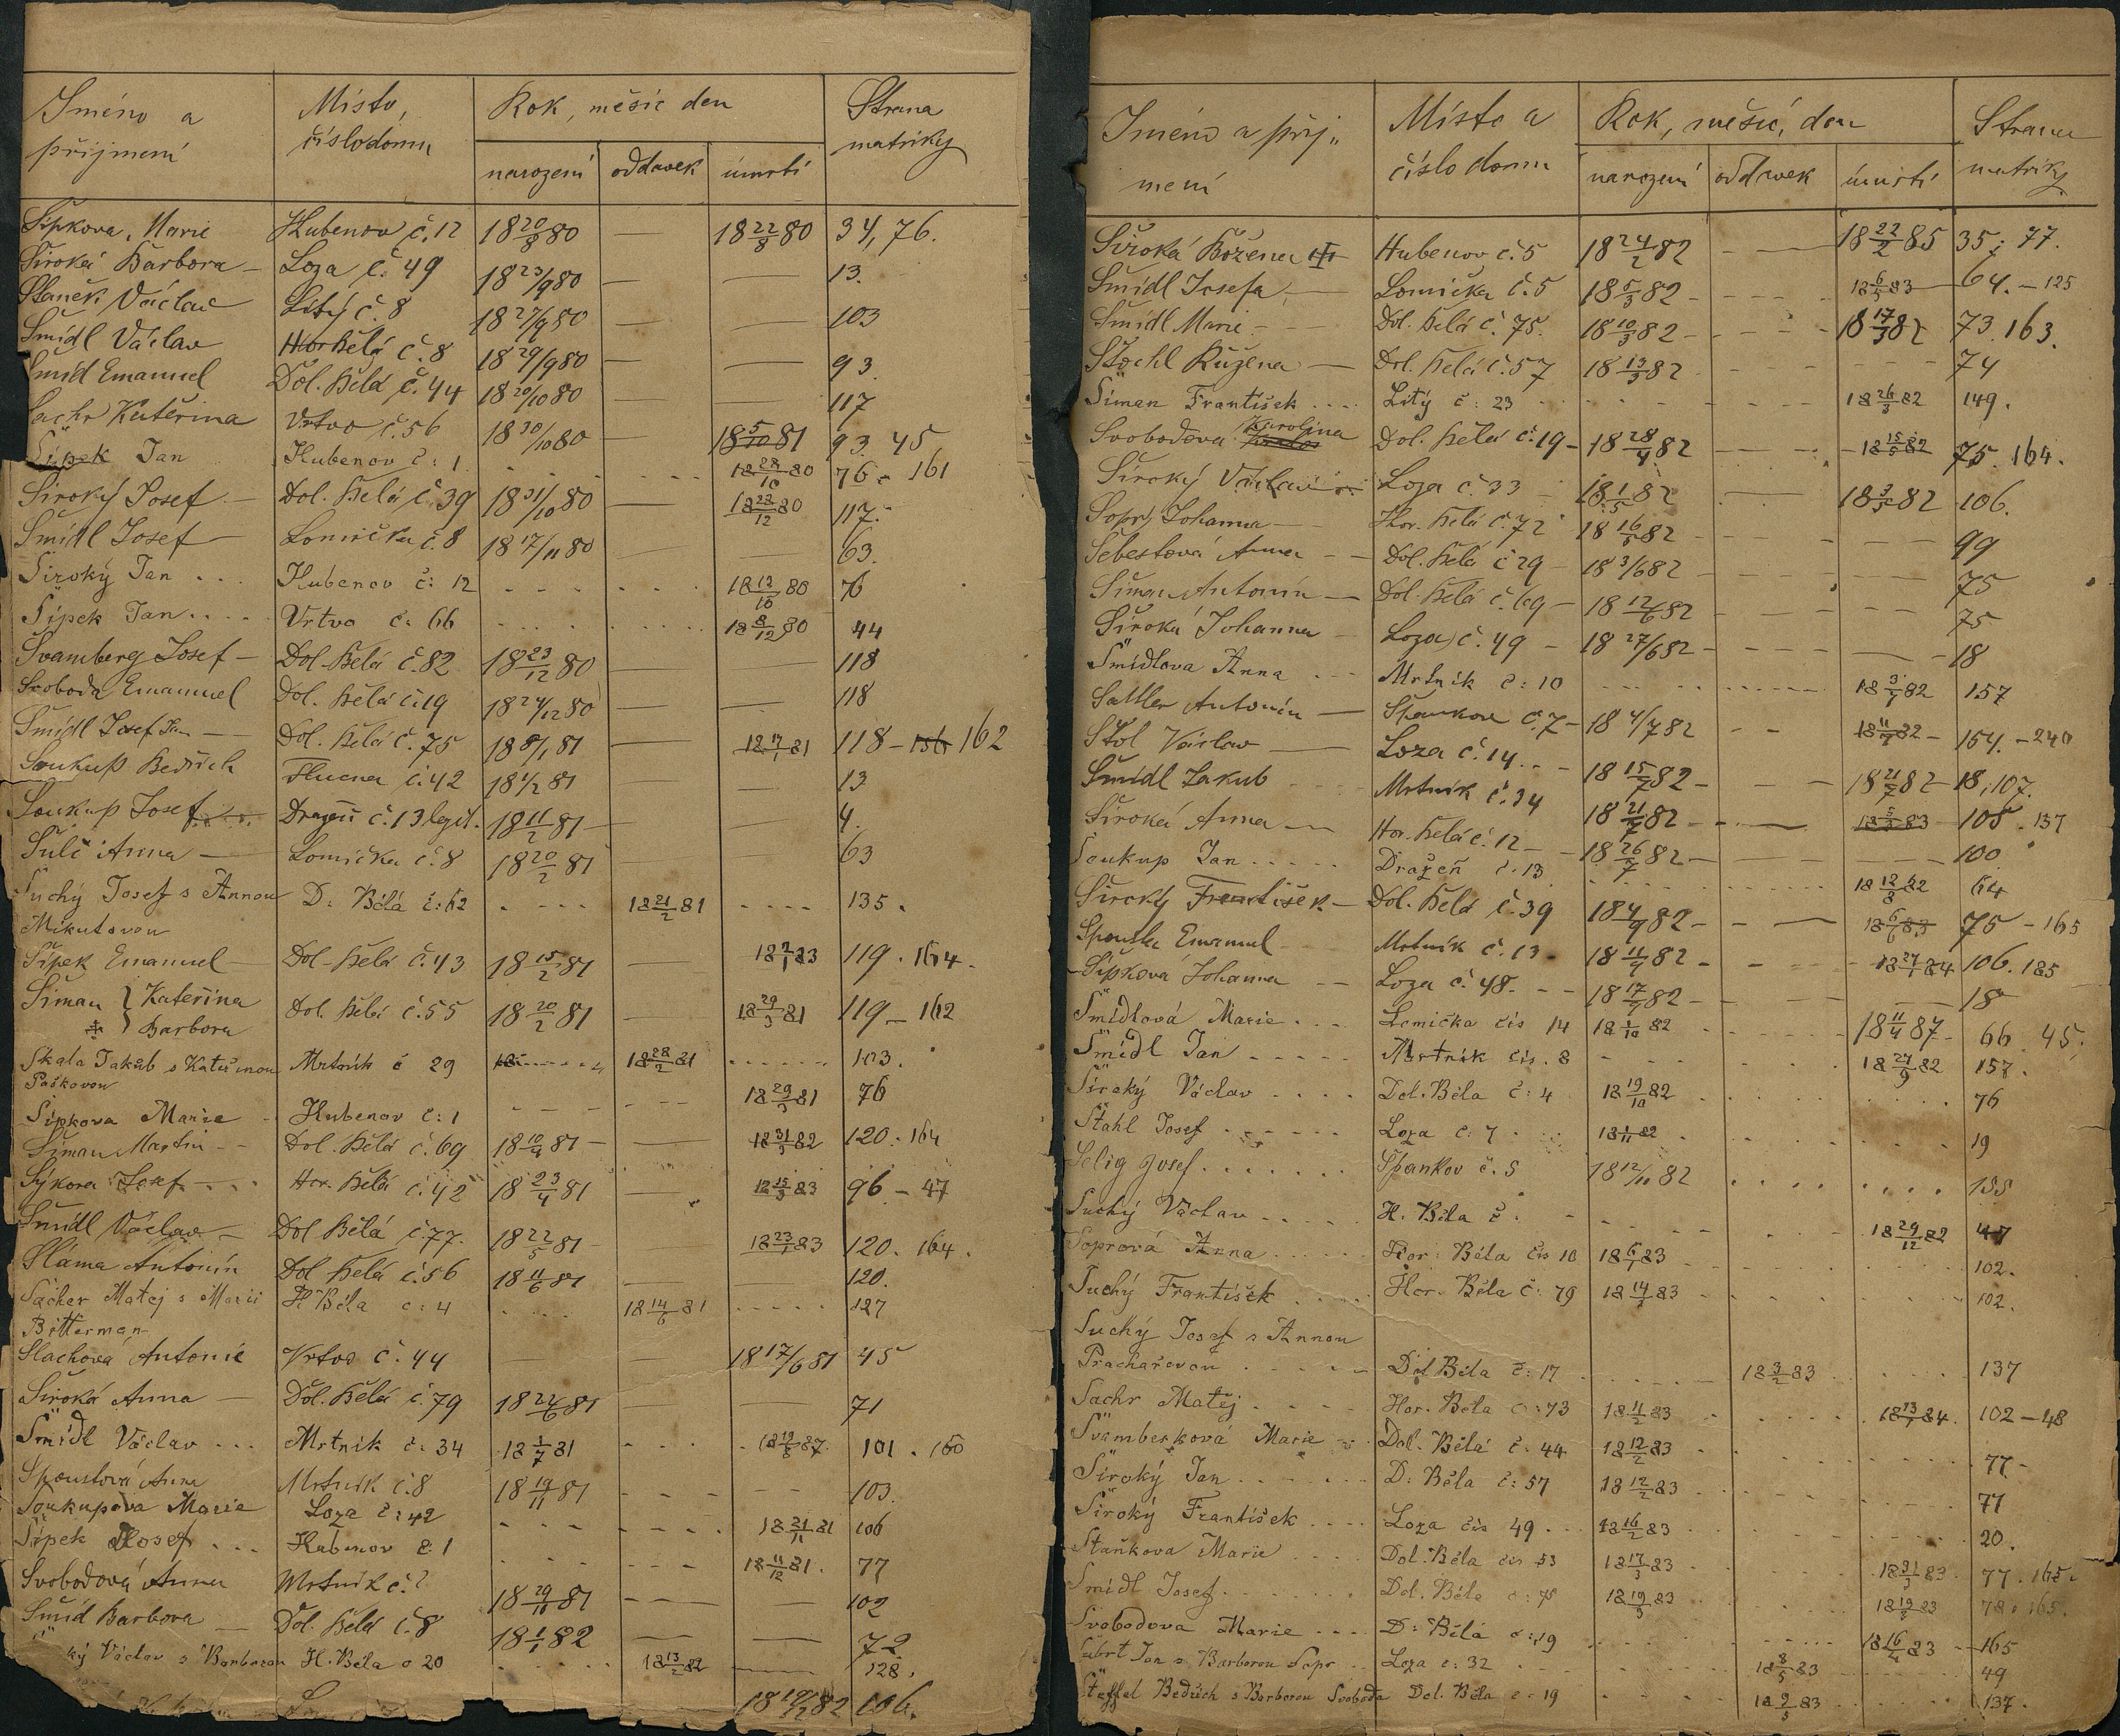 Jméno a příjmení Místo, číslo domu Rok, měsíc den Strana matriky
narození oddavek úmrtí
Šípkova Marie Hubenov č. 12 18 20/8 80 — 18 22/8 80 34, 76.
Široká Barbora — Loza č. 49 18 23/9 80 — 13.
Staněk Václav Litý č. 8 18 27/9 80 — — 103
Šmídl Václav Hor. Bělá č. 8 18 29/9 80 — — 93.
Šmíd Emanuel Dol. Bělá č. 44 18 20/10 80 — — 117
Sachr Kateřina Vrtvo č. 56 18 30/10 80 — 18 5/10 81 93. 45
Šípek Jan Hubenov č: 1 18 28/10 80 76 - 161
Široký Josef — Dol. Bělá č. 39 18 31/10 80 — 18 22/12 80 117.
Šmídl Josef — Lomička č. 8 18 17/11 80 — — 63.
Široký Jan . . . Hubenov č: 12 18 12/10 80 76
Šípek Jan . . . . Vrtvo č. 66 18 8/12 80 44
Švamberg Josef — Dol. Bělá č. 82 18 23/12 80 — — 118
Svoboda Emanuel Dol. Bělá č. 19 18 24/12 80 — — 118
Šmídl Josef Jan — Dol. Bělá č. 75 18 8/1 81 — 18 17/1 81 118 - 162
Soukup Bedřich Hlucna č. 42 18 4/2 81 — — 13
Soukup Josef Dražeň č. 13 legit. 18 11/2 81 — — 4.
Šulc Anna — Lomička č. 8 18 20/2 81 — — 63
Suchý Josef s Annou D: Bělá č: 62 . - - - 18 21/2 81 - - - - 135.
Mikutovou
Šípek Emanuel — Dol. Bělá č. 43 18 15/2 81 — 18 2/1 83 119 . 164.
Šiman } Kateřina Dol. Bělá č. 55 18 20/2 81 — 18 29/3 81 119 — 162
‡ } Barbora
Skala Jakub s Kateřinou Mrtník č 29 18 28/2 81 . . . . . . 103.
Paškovou
Šípkova Marie Hubenov č: 1 18 29/3 81 76
Šiman Martin - Dol. Bělá č. 69 18 10/4 81 — — 18 31/3 82 120. 164
Sýkora Josef Hor. Bělá č. 42 18 23/4 81 — 18 15/3 83 96 - 47
Šmídl Václav — Dol Bělá č. 77. 18 22/5 81 — 18 23/1 83 120. 164.
Sláma Antonín Dol Bělá č. 56 18 11/6 81 — — 120.
Sacher Matej s Marií H Běla č: 4 18 14/6 81 - - - - 127
Bitterman
Slachová Antonie Vrtvo č. 44 — — 18 17/6 81 45
Široká Anna — Dol. Bělá č. 79 18 24/6 81 — — 71
Šmídl Václav . . . Mrtník č: 34 18 1/7 81 - - - 18 12/8 87. 101 . 160
Spoustová Anna Mrtník č. 8 18 19/11 81 103.
Soukupova Marie Loza č: 42 18 21/11 81 106
Šípek Josef . . . Hubenov č: 1 18 11/12 81. 77
Svobodová Anna Mrtník č. 18 29/11 81 102
Šmíd Barbora — Dol. Bělá č. 8 18 1/1 82 — — 72
ký Václav s Barborou H. Běla č 20 18 13/2 82 128.
18 19/2 82 106.
Jméno a příj„ mení Místo a číslo domu Rok, měsíc, den Strana matriky
narození oddavek úmrtí
Široká Božena Hubenov č. 5 18 24/2 82 - — 18 22/2 85 35; 77.
Šmídl Josefa — Lomička č. 5 18 5/3 82 - 18 6/5 83 64. - 125
Šmídl Marie Dol. Bělá č. 75. 18 10/3 82 - 18 17/3 82 73. 163.
Stochl Růžena — Dol. Bělá č. 57 18 13/3 82 74
Šiman František . . . . Litý č: 23 18 26/3 82 149.
Svobodova Karolina Dol. Bělá č. 19 - 18 28/4 82 — 18 15/5 82 75. 164.
Široký Václav Loza č. 33 18 1/5 82 — 18 2/5 82 106.
Sopr Johanna — Hor. Bělá č. 72 18 16/5 82 — 99
Šebestová Anna — Dol. Bělá č 29 - 18 3/6 82 75
Šiman Antonín — Dol. Bělá č. 69 - 18 12/6 82 75
Široká Johanna — Loza č. 49 - 18 27/6 82 18
Šmídlova Anna . . . Mrtník č: 10 18 3/7 82 157
Sattler Antonín — Špankov č. 7 - 18 4/7 82 - - 18 11/7 82 - 154. - 240
Stol Václav — Loza č. 14 . . - 18 15/7 82 - 18 21/7 82 - 18; 107.
Šmídl Jakub Mrtník č. 34 18 21/7 82 - 105 . 137
Široká Anna — Hor. Bělá č. 12 — 18 26/7 82 — 100
Soukup Jan . . . . . Dražeň č. 13 18 12/8 82 64
Široký František — Dol. Bělá č. 39 18 4/9 82 - — 18 6/6 83 75 - 165
Spousta Emanuel Mrtník č. 13 - 18 11/9 82 - 18 27/1 84 106. 185
Šípková Johanna — Loza č. 48. - - 18 17/9 82 - 18
Šmídlová Marie . . . Lomička čís 14 18 1/10 82 18 11/4 87 - 66 . 45.
Šmídl Jan - - - - - Mrtník čís. 8 18 27/9 82 157.
Široký Václav . . . . Dol. Běla č: 4 18 19/10 82 76
Stahl Josef . . . . . . Loza č: 7 18 1/11 82 . 19
Selig Josef . . . . . . . Špankov č. 5 18 12/11 82 155
Suchý Václav . . . . . H. Běla č. 18 29/12 82 47
Soprová Anna . . . . . Hor: Běla čís 10 18 6/1 83 102.
Suchý František . . . . Hor. Běla č: 79 18 14/1 83 102.
Suchý Josef s Annou
Prachařovou . . . . . Dol Běla č: 17 18 3/2 83 137
Sachr Matej . . . . Hor. Běla č: 73 18 11/2 83 18 13/1 84. 102 - 48
Švamberková Marie Dol. Bělá č: 44 18 12/2 83 77 -
Široký Jan . . . . . . D: Běla č: 57 18 12/2 83 77
Široký František . . . . Loza čís 49 . . . 18 16/2 83 20.
Staňkova Marie . . . . Dol. Běla čís 53 18 17/3 83 18 31/3 83 77. 165.
Šmídl Josef . . . . . . Dol. Běla č: 75 18 19/3 83 18 19/3 83 78. 165.
Svobodova Marie . . . . D: Bělá č: 19 18 16/4 83 165
Šubrt Jan s Barborou Sopr . . Loza č: 32 18 8/5 83 49
Steffel Bedřich s Barborou Svoboda Dol. Běla č: 19 18 9/5 83 137.